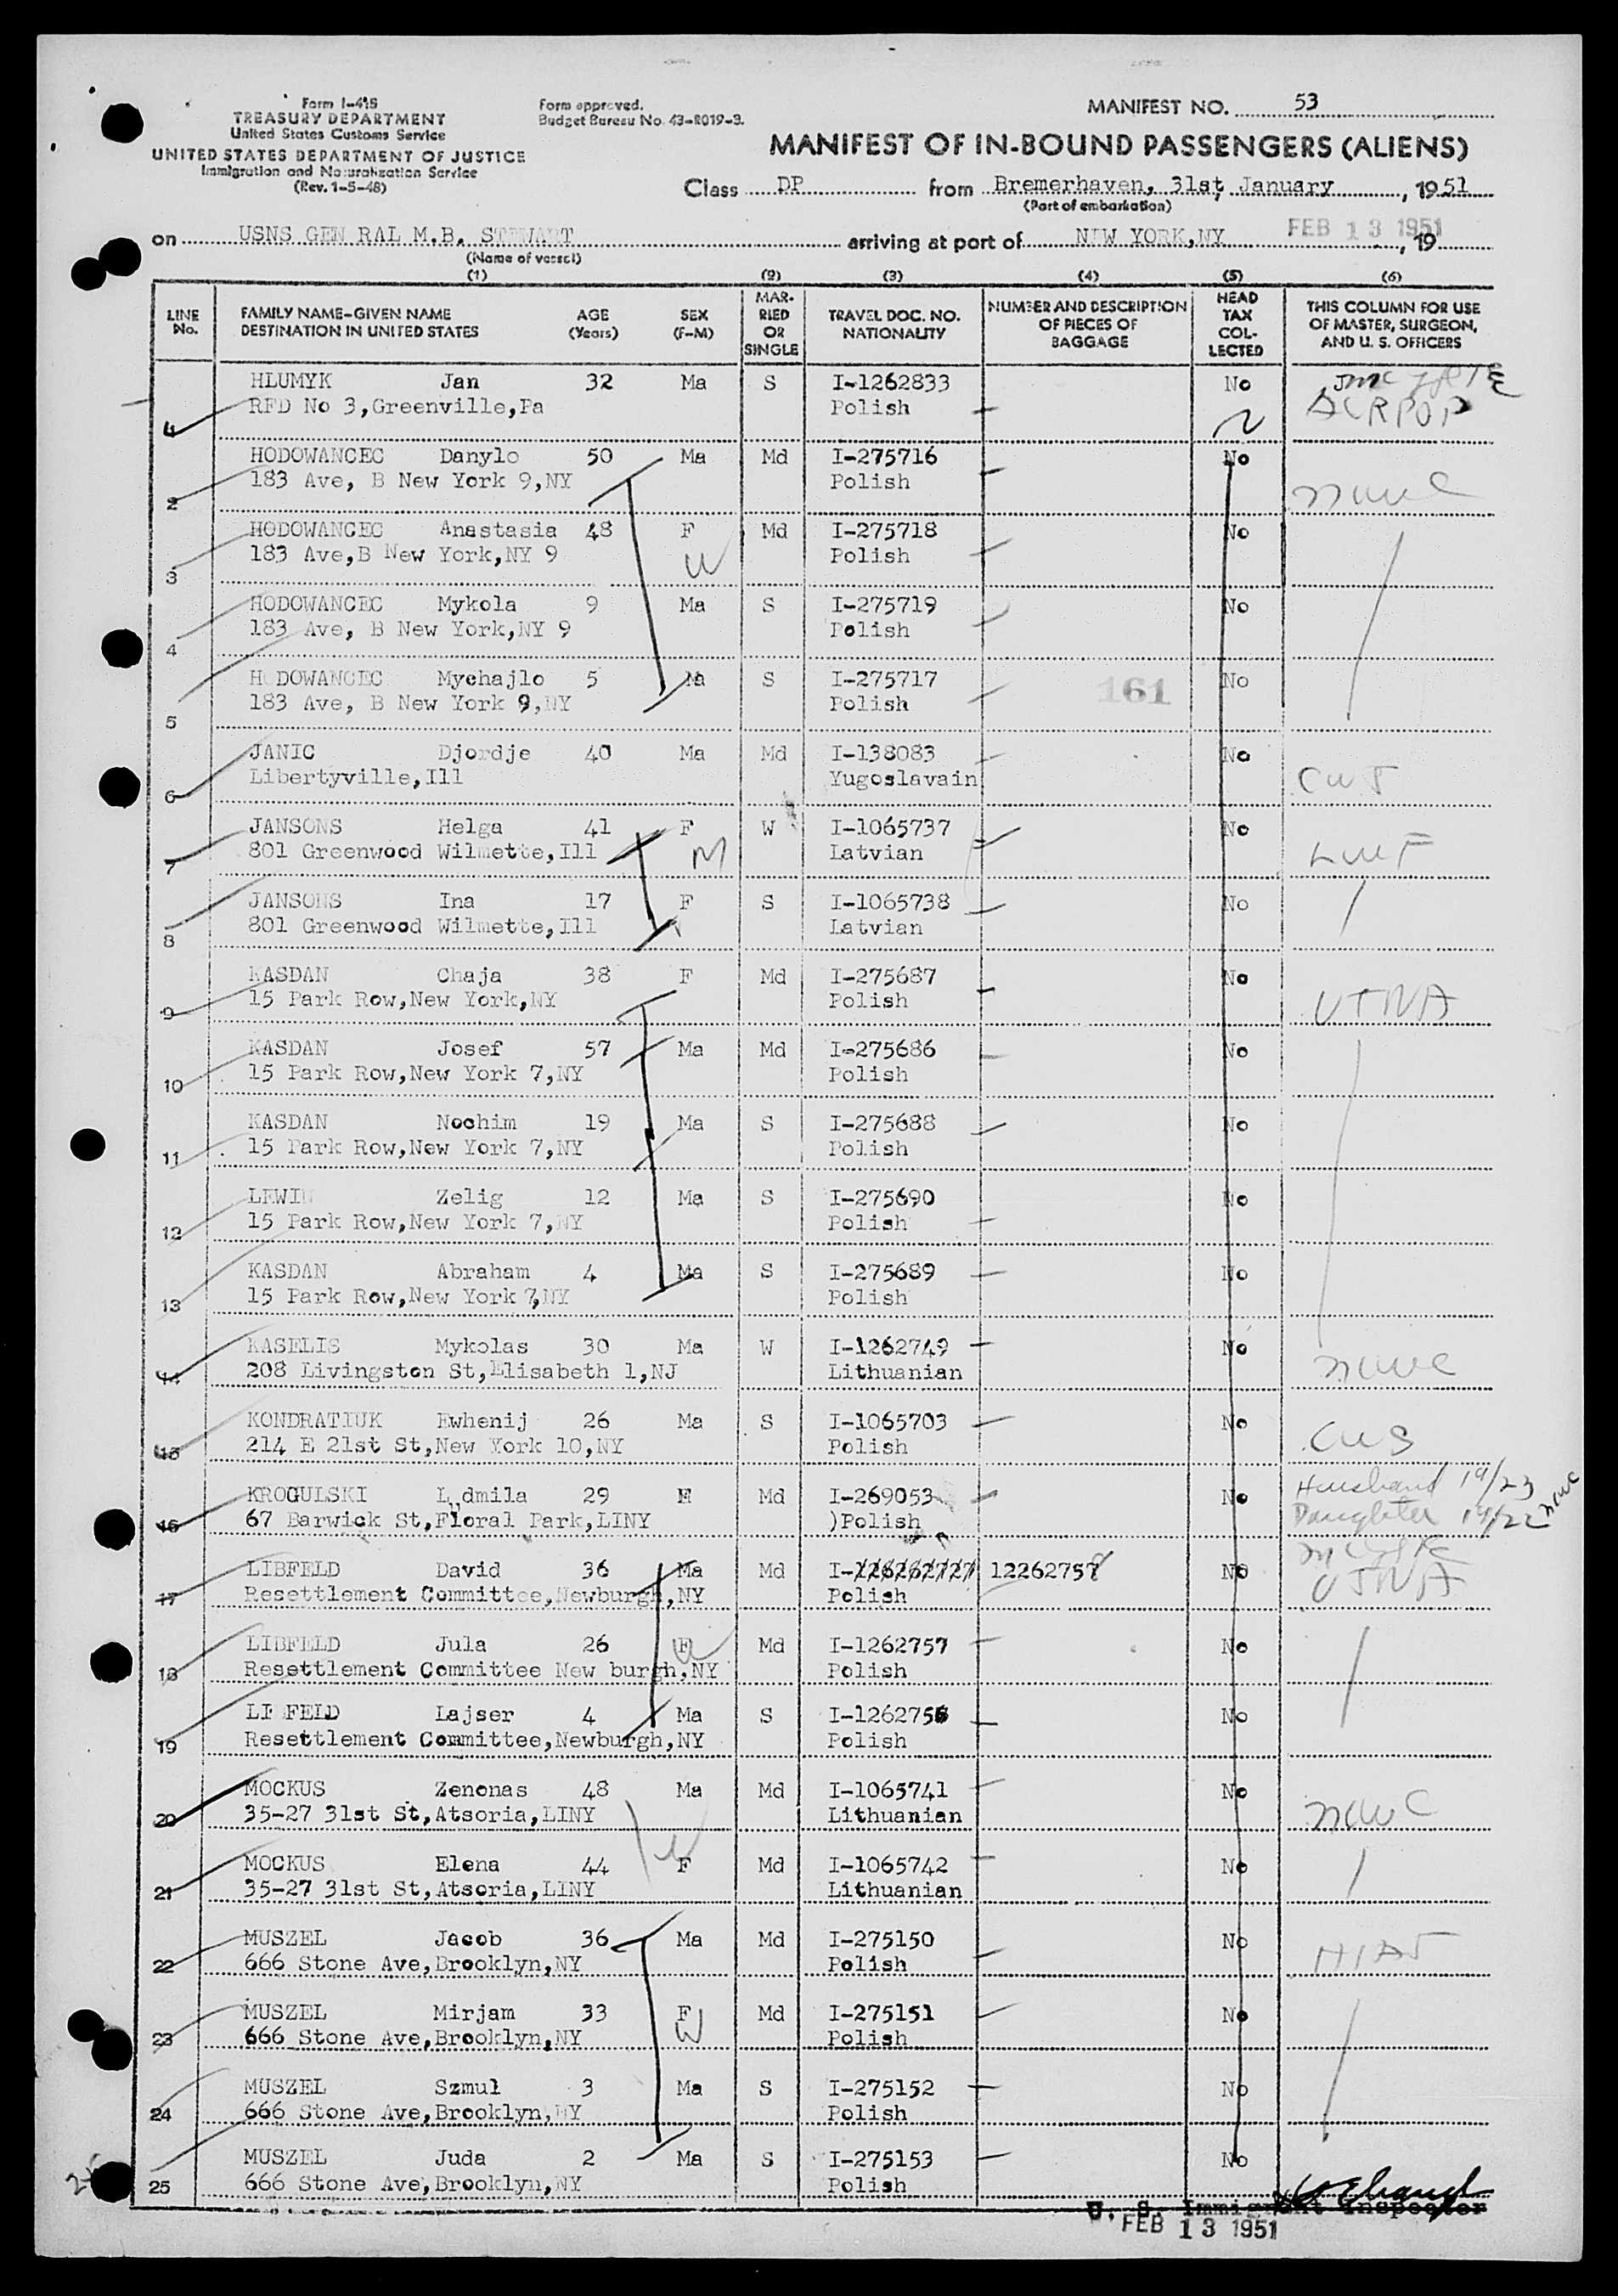 Form I-418
TREASURY DEPARTMENT
United States Customs Service
UNITED STATES DEPARTMENT OF JUSTICE
Immigration and Naturalization Service
(Rev. 1-5-48)
Form approved.
Budget Bureau No. 43-R019-3.
MANIFEST NO. 53
MANIFEST OF IN-BOUND PASSENGERS (ALIENS)
Class DP from Bremerhaven, 31st January, 1951
(Port of embarkation)
on USNS GEN RAL M.B. STEWART arriving at port of NEW YORK,NY FEB 13 1951, 19
(Name of vessel)
(1) (2) (3) (4) (5) (6)
LINE No. FAMILY NAME-GIVEN NAME DESTINATION IN UNITED STATES AGE (Years) SEX (F-M) MARRIED OR SINGLE TRAVEL DOC. NO. NATIONALITY NUMBER AND DESCRIPTION OF PIECES OF BAGGAGE HEAD TAX COLLECTED THIS COLUMN FOR USE OF MASTER, SURGEON, AND U. S. OFFICERS
HLUMYK Jan 32 Ma S I-1262833 No
RFD No 3,Greenville,Pa Polish ACRPOP
2 HODOWANCEC Danylo 50 Ma Md I-275716 No
183 Ave, B New York 9,NY Polish NCWC
3 HODOWANCEC Anastasia 48 F Md I-275718 No
183 Ave,B New York,NY 9 W Polish
4 HODOWANCEC Mykola 9 Ma S I-275719 No
183 Ave, B New York,NY 9 Polish
5 H DOWANCEC Mychajlo 5 Ma S I-275717 161 No
183 Ave, B New York 9,NY Polish
6 JANIC Djordje 40 Ma Md I-138083 No
Libertyville,Ill Yugoslavain CWS
7 JANSONS Helga 41 F W I-1065737 No
801 Greenwood Wilmette,Ill M Latvian LWF
8 JANSONS Ina 17 F S I-1065738 No
801 Greenwood Wilmette,Ill Latvian
9 KASDAN Chaja 38 F Md I-275687 No
15 Park Row,New York,NY Polish USNA
10 KASDAN Josef 57 Ma Md I-275686 No
15 Park Row,New York 7,NY Polish
11 KASDAN Nochim 19 Ma S I-275688 No
15 Park Row,New York 7,NY Polish
12 LEWIN Zelig 12 Ma S I-275690 No
15 Park Row,New York 7,NY Polish
13 KASDAN Abraham 4 Ma S I-275689 No
15 Park Row,New York 7,NY Polish
14 KASELIS Mykolas 30 Ma W I-1262749 No
208 Livingston St,Elisabeth 1,NJ Lithuanian NCWC
15 KONDRATIUK Ewhenij 26 Ma S I-1065703 No
214 E 21st St,New York 10,NY Polish CWS
16 KROGULSKI Ludmila 29 F Md I-269053 No Husband 19/23
67 Barwick St,Floral Park,LINY )Polish Daughter 19/22 NCWC
17 LIBFELD David 36 Ma Md 1226275 No
Resettlement Committee,Newburgh,NY Polish USNA
18 LIBFELD Jula 26 F Md I-1262757 No
Resettlement Committee New burgh,NY Polish
19 LI FELD Lajser 4 Ma S I-1262756 No
Resettlement Committee,Newburgh,NY Polish
20 MOCKUS Zenonas 48 Ma Md I-1065741 No
35-27 31st St,Atsoria,LINY W Lithuanian NCWC
21 MOCKUS Elena 44 F Md I-1065742 No
35-27 31st St,Atsoria,LINY Lithuanian
22 MUSZEL Jacob 36 Ma Md I-275150 No
666 Stone Ave,Brooklyn,NY Polish HIAS
23 MUSZEL Mirjam 33 F Md I-275151 No
666 Stone Ave,Brooklyn,NY W Polish
24 MUSZEL Szmul 3 Ma S I-275152 No
666 Stone Ave,Brooklyn,NY Polish
25 MUSZEL Juda 2 Ma S I-275153 No
666 Stone Ave,Brooklyn,NY Polish
U. S. Immigrant Inspector
FEB 13 1951